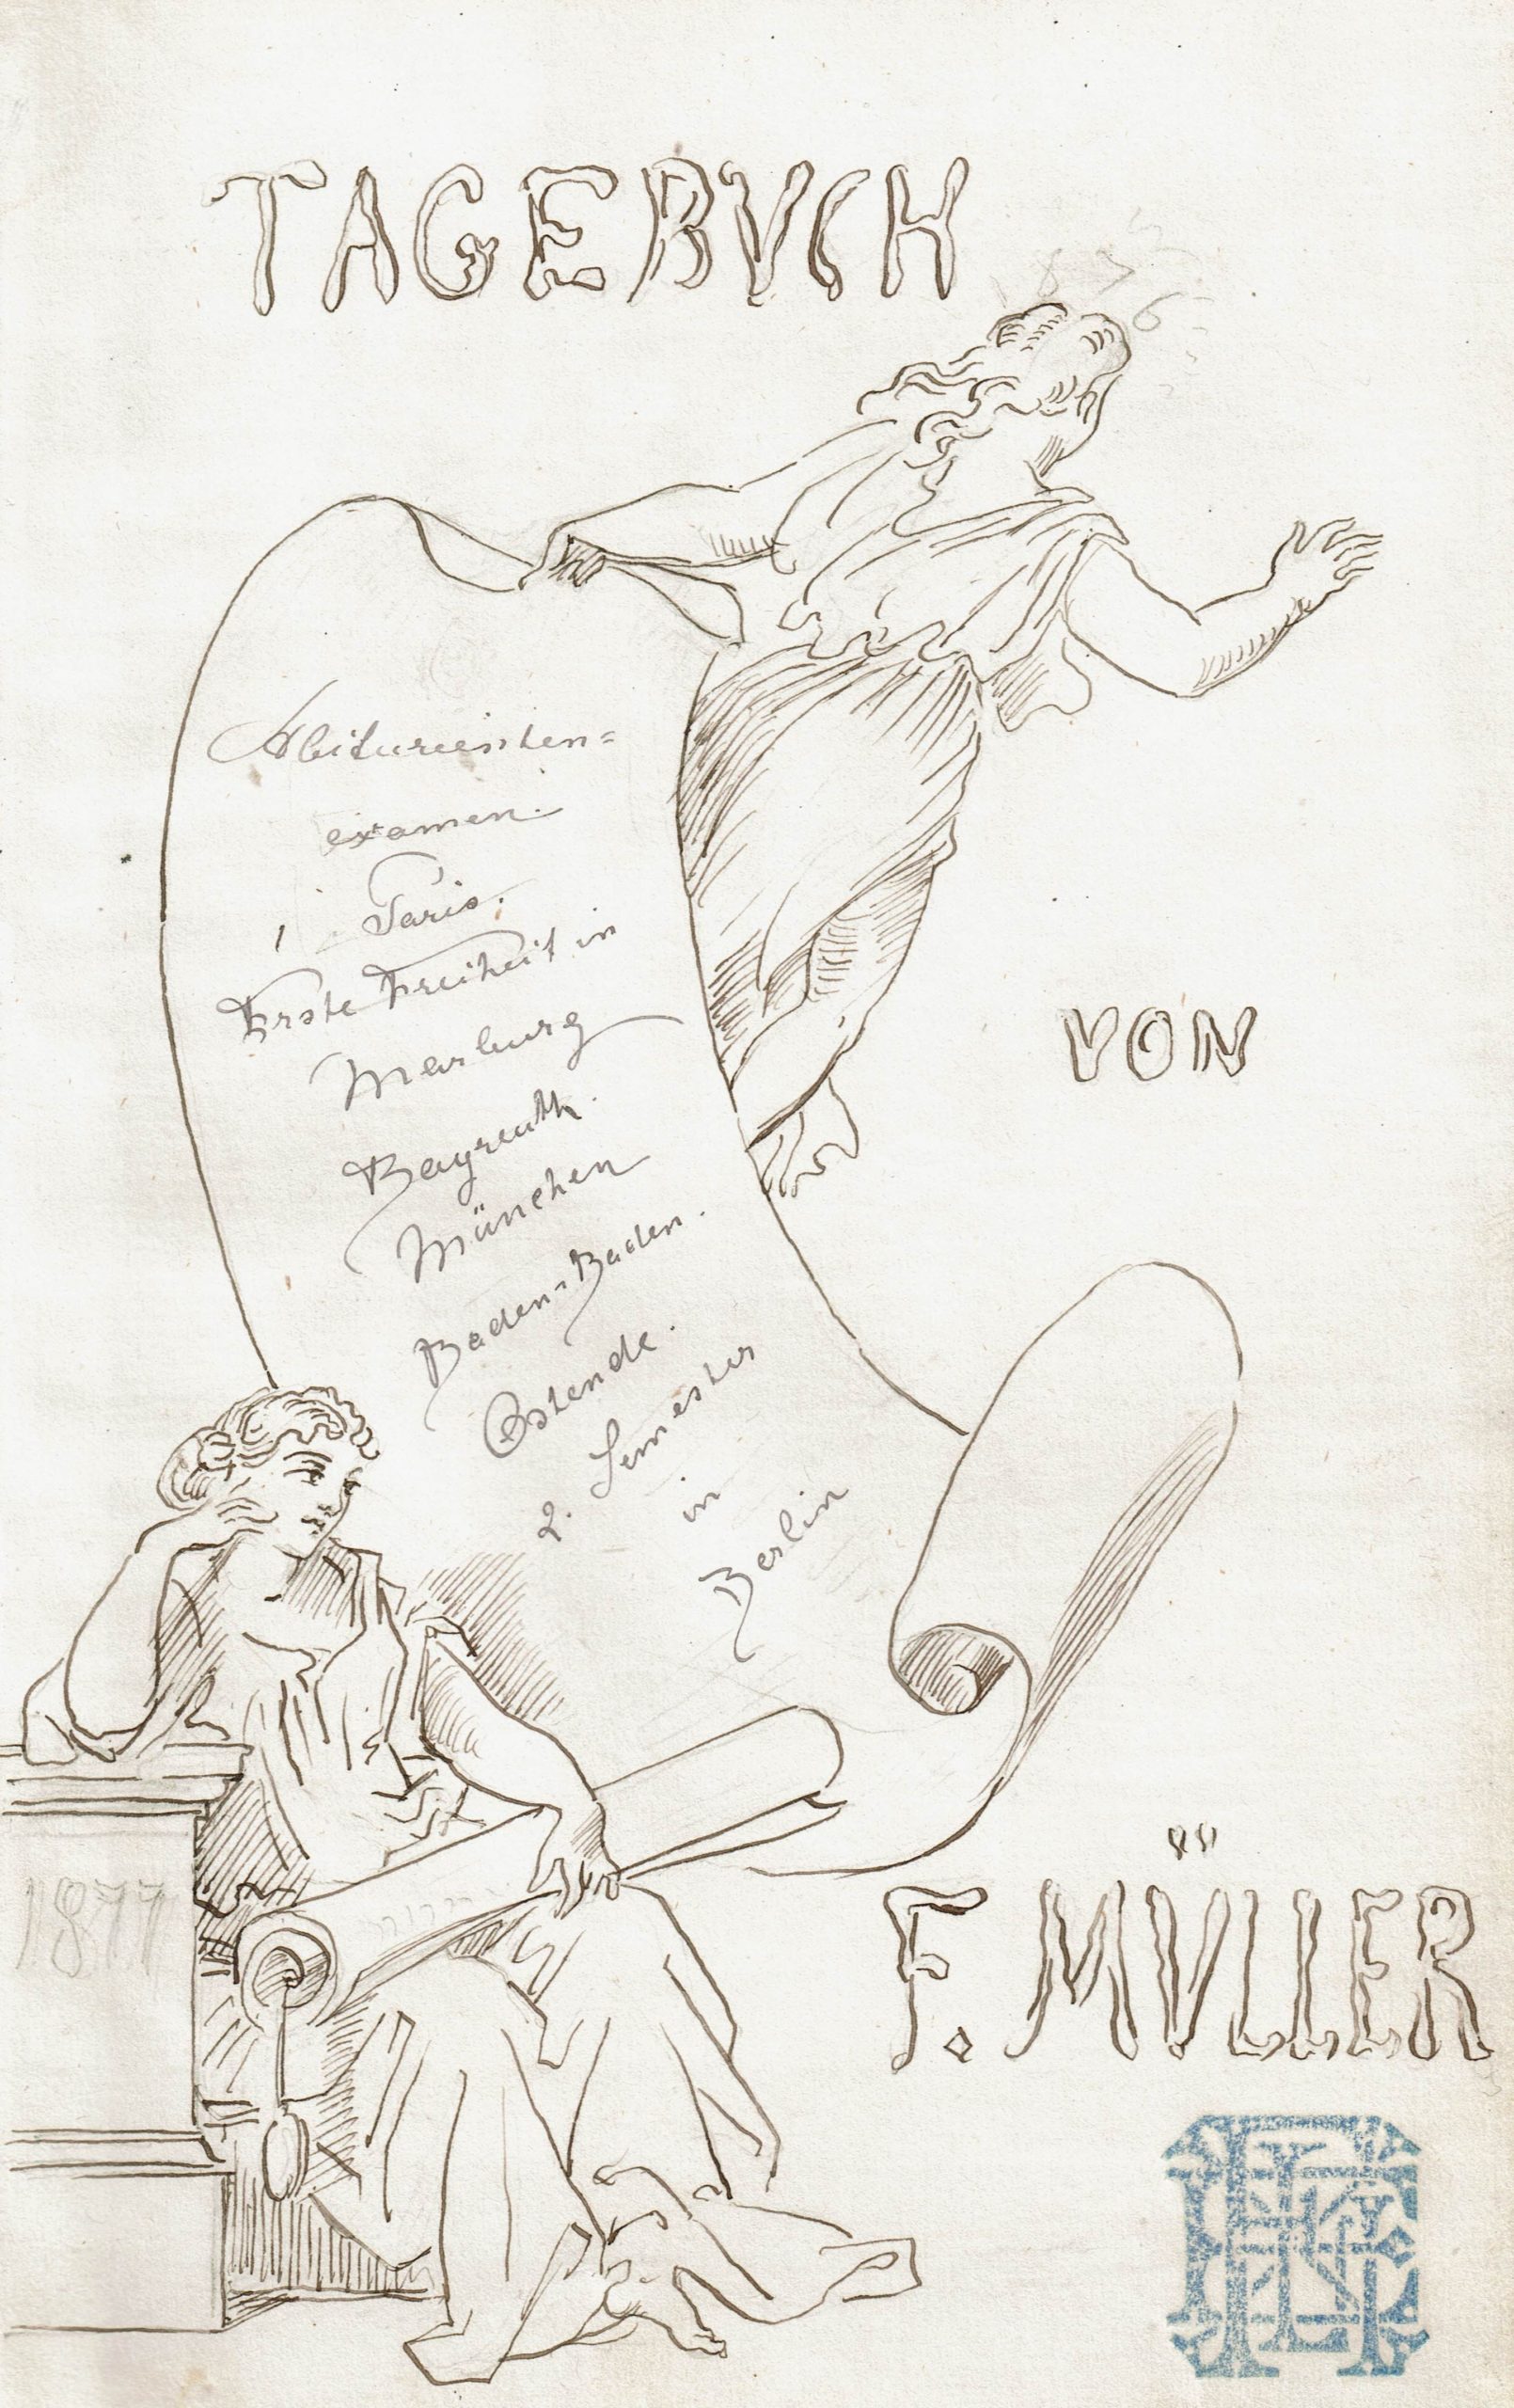 TAGEBVCH
1876
Abiturienten=
examen.
Paris.
Erste Freiheit in
Marburg
Bayreuth.
München
Baden=Baden.
Ostende.
2. Semester
in
Berlin
VON
1877
F. MÜLLER